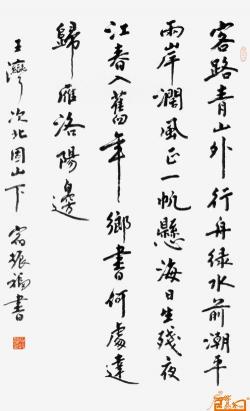 客路青山外行舟绿水前潮平
両岸濶風正一帆懸海日生殘夜
江春入舊年鄉書何處達
歸雁洛陽邊
王灣次北固山下 宿振福書